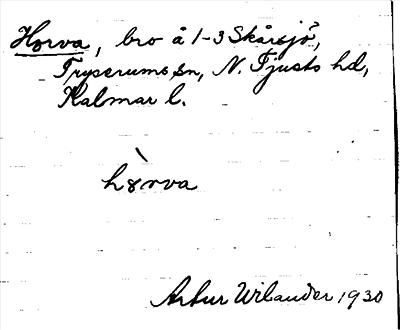 Horva, bro å 1-3 Skårsjö,
Tryserums sn, N. Tjusts hd,
Kalmar l.
hȣ̀rva
Artur Wilander 1930